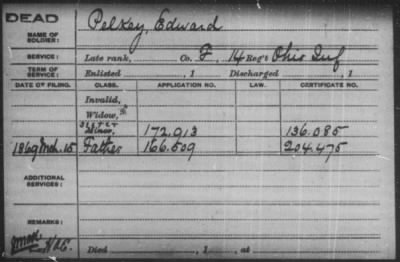 DEAD
NAME OF SOLDIER: Pelkey, Edward
SERVICE: Late rank, Co. F, 14 Reg't Ohio Inf
TERM OF SERVICE: Enlisted , 1 Discharged , 1
DATE OF FILING. CLASS. APPLICATION NO. LAW. CERTIFICATE NO.
Invalid,
Widow,
Sister
Minor, 172.913 136.085
1869 Mch. 15 Father 166.509 204.475
ADDITIONAL SERVICES:
REMARKS:
Died , 1 , at